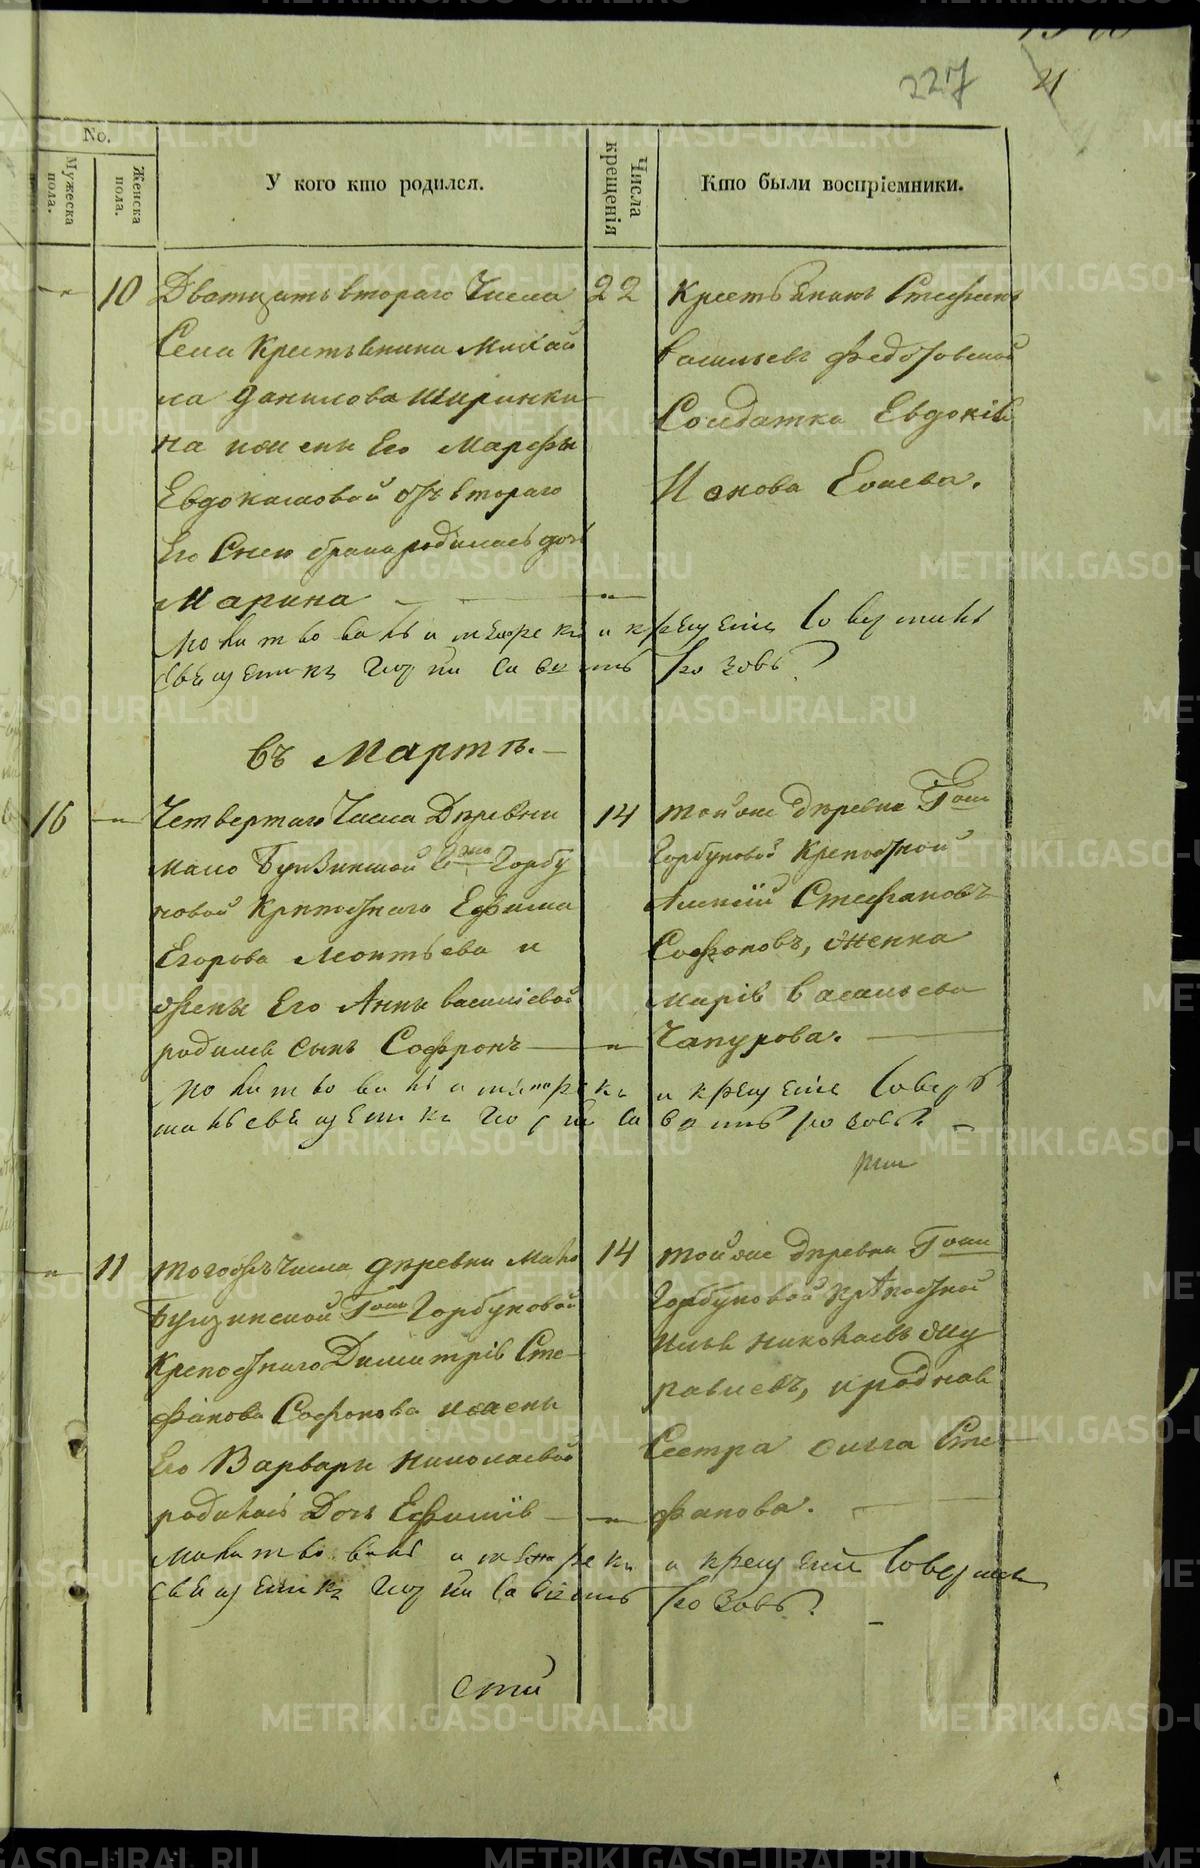 227
21
No.
Мужеска пола.
Женска пола.
У кого кто родился.
Числа крещенія
Кто были воспріемники.
10
Дватцать втораго Числа
Села Крестьянина Михай
ла Данилова Ширинки
на и жены Его Марѳы
Евдокимовой отъ втораго
Его Снею брака родилась дочь
Марина
22
Крестьянинъ Стефанъ
Васильевъ Федотовской
Солдатка Евдокія
Исакова
Молитвовалъ и нарекъ и крещеніе Совершилъ
Священникъ
въ Мартѣ.
16
Четвертаго Числа Деревни
Мало Горбу
новой Крѣпостнаго Ефима
Егорова Леонтьева и
жены Его Анны Васильевой
родился сынъ Софронъ
14
той же деревни Гжи
Горбуновой Крепостной
Алексѣй Стефановъ
Софоновъ, Женка
Марія Васильева
Чапурова.
Молитвовалъ и нарекъ и крещеніе Совер
шилъ Священникъ
11
тогожъ числа деревни Мало
Гжи Горбуновой
Крепостнаго Димитрія Сте
фанова Софонова и жены
Его Варвары Николаевой
родилась Дочь Ефимія
14
той же деревни Гжи
Горбуновой крѣпостной
Илья Николаевъ Жу
равлевъ, и родная
Сестра Ольга Сте
фанова.
Молитвовалъ и нарекъ и крещеніе Совершилъ
Священникъ
METRIKI.GASO-URAL.RU